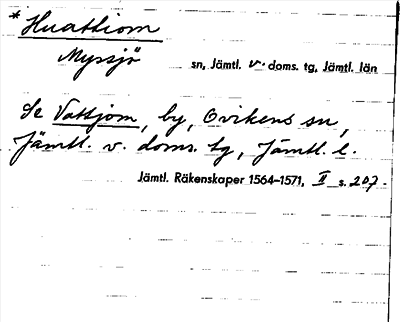 * Huattiom
Myssjö sn, Jämtl. v. doms. tg, Jämtl. län
Se Vattjom, by, Ovikens sn,
Jämtl. v. doms. tg, Jämtl. l.
Jämtl. Räkenskaper 1564-1571, II s. 207.